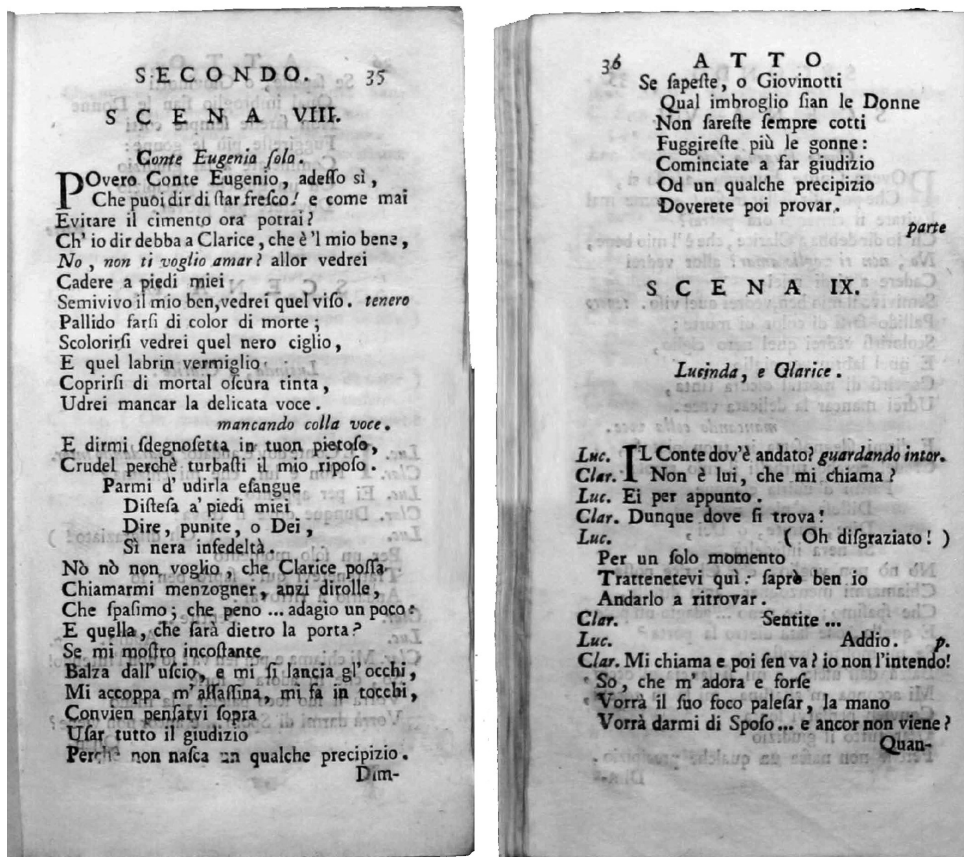 SECONDO. 35
SCENA VIII.
Conte Eugenia ſola.
POvero Conte Eugenio, adeſſo sì,
Che puoi dir di ſtar freſco! e come mai
Evitare il cimento ora potrai?
Ch' io dir debba a Clarice, che è 'l mio bene,
No, non ti voglio amar? allor vedrei
Cadere a piedi miei
Semivivo il mio ben, vedrei quel viſo. tenero
Pallido farſi di color di morte;
Scolorirſi vedrei quel nero ciglio,
E quel labrin vermiglio
Coprirſi di mortal oſcura tinta,
Udrei mancar la delicata voce.
mancando colla voce.
E dirmi ſdegnoſetta in tuon pietoſo,
Crudel perchè turbaſti il mio ripoſo.
Parmi d' udirla eſangue
Diſteſa a' piedi miei
Dire, punite, o Dei,
Sì nera infedeltà.
Nò nò non voglio, che Clarice poſſa
Chiamarmi menzogner, anzi dirolle,
Che ſpaſimo; che peno ... adagio un poco:
E quella, che ſarà dietro la porta?
Se mi moſtro incoſtante
Balza dall' uſcio, e mi ſi lancia gl' occhi,
Mi accoppa m' aſſaſſina, mi fa in tocchi,
Convien penſarvi ſopra
Uſar tutto il giudizio
Perchè non naſca un qualche precipizio.
Dim-
36 ATTO
Se ſapeſte, o Giovinotti
Qual imbroglio ſian le Donne
Non ſareſte ſempre cotti
Fuggireſte più le gonne:
Cominciate a far giudizio
Od un qualche precipizio
Doverete poi provar.
parte
SCENA IX.
Lucinda, e Clarice.
Luc. IL Conte dov'è andato? guardando intor.
Clar. Non è lui, che mi chiama?
Luc. Ei per appunto.
Clar. Dunque dove ſi trova!
Luc. ( Oh diſgraziato! )
Per un ſolo momento
Trattenetevi quì: ſaprò ben io
Andarlo a ritrovar.
Clar. Sentite ...
Luc. Addio. p.
Clar. Mi chiama e poi ſen va? io non l'intendo!
So, che m' adora e forſe
Vorrà il ſuo foco paleſar, la mano
Vorrà darmi di Spoſo ... e ancor non viene?
Quan-